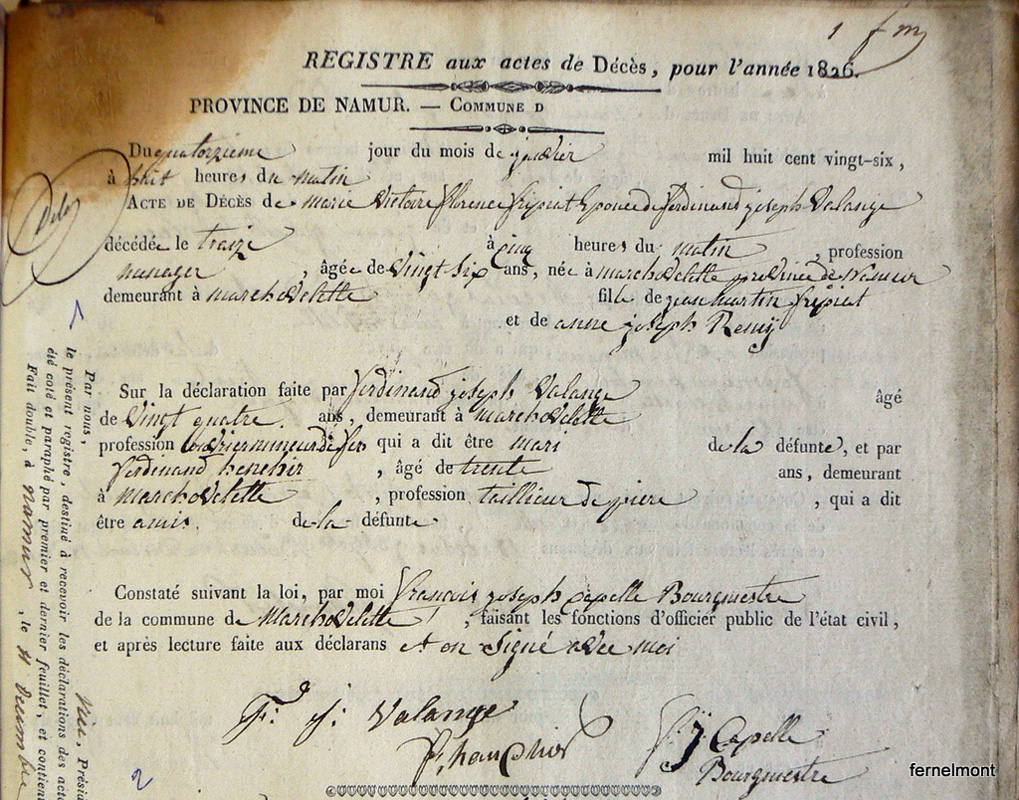 1
REGISTRE aux actes de Décès, pour l'année 1826.
PROVINCE DE NAMUR. — COMMUNE D
Du quatorzieme jour du mois de janvier mil huit cent vingt-six,
à huit heures du matin
ACTE DE DÉCÈS de marie Victoire florence fripiat Epouce de ferdinand joseph Valange
décédée le traize à cinq heures du matin, profession
menager, âgée de Vingt Six ans, née à marchoVelette province de namur
demeurant à marchoVelette fille de jean martin fripiat
et de anne joseph Remij
Sur la déclaration faite par ferdinand joseph Valange âgé
de Vingt quatre ans, demeurant à marchoVelette
profession qui a dit être mari de la défunte, et par
ferdinand, âgé de trente ans, demeurant
à marchoVelette, profession taillieur de piere, qui a dit
être amis de la défunte
Constaté suivant la loi, par moi francois joseph Capelle Bourgmestre
de la commune de MarchoVelette, faisant les fonctions d'officier public de l'état civil,
et après lecture faite aux déclarans et on Signé aVec moi
F. j: Valange
f. j. Capelle
Bourgmestre
Par nous,
le présent registre, destiné à recevoir les déclarations des
été coté et paraphé par premier et dernier feuillet, et contient
Fait double, à namur, le
2
fernelmont